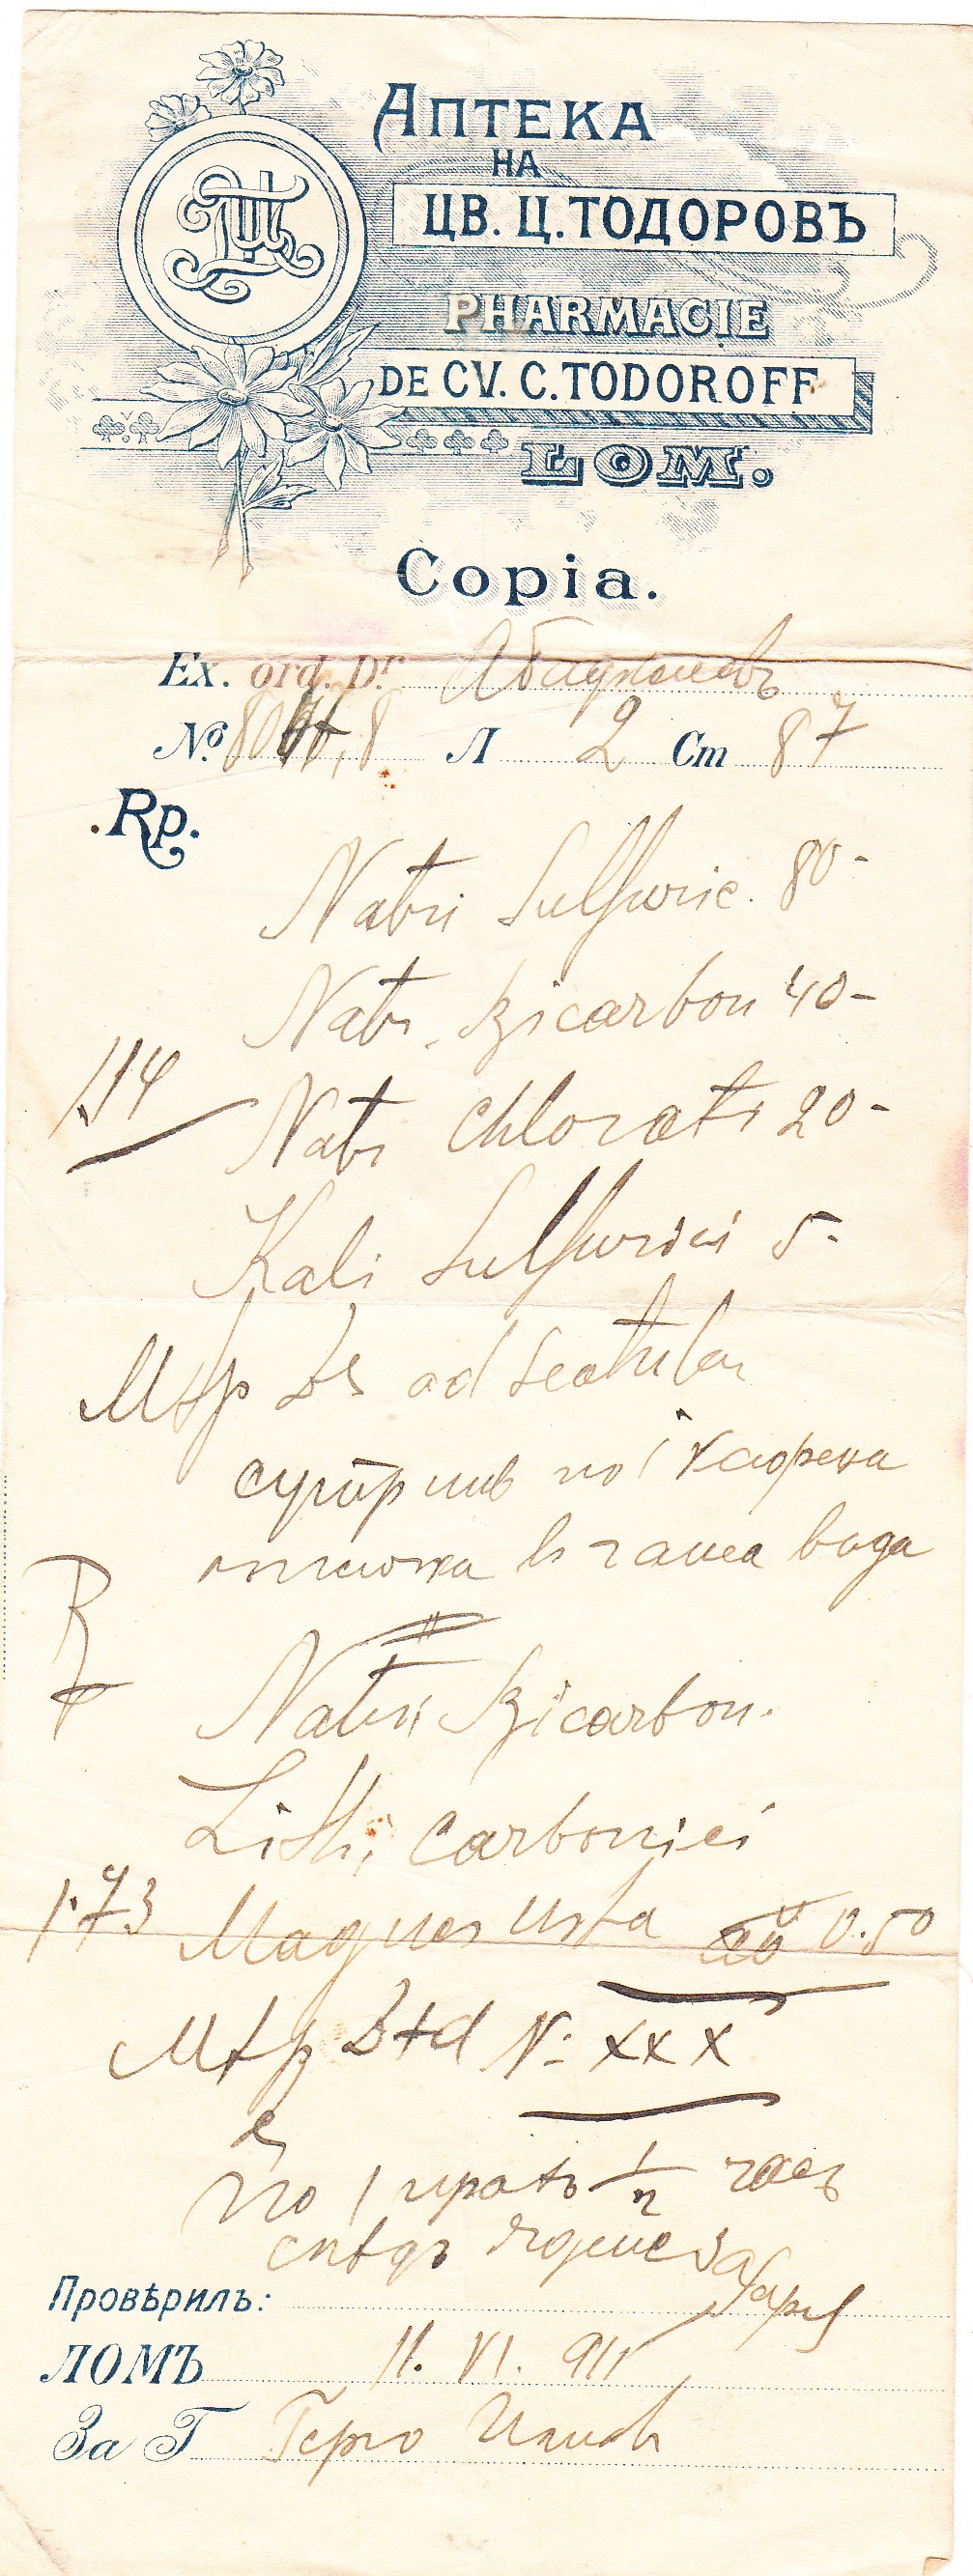 АПТЕКА
НА
ЦВ. Ц. ТОДОРОВЪ
PHARMACIE
DE CV. C. TODOROFF
LOM.
Copia.
Ex. ord. Dr.
№ 8 Л 2 Ст 87
Rp.
Natri Sulfuric. 80-
Natr. Bicarbon 40-
Natr Chlorati 20-
Kali Sulfurici 5-
ad scatulam
сутрин по 1 кафена
вода
II
Natri Bicarbon.
Lith. Carbonici
1.73 Magnes usta aa 0.50
Dtd N: XXX
По 1 прахъ часъ
слѣдъ ядене
Провѣрилъ:
ЛОМЪ 11. VI. 911
За Г Герго